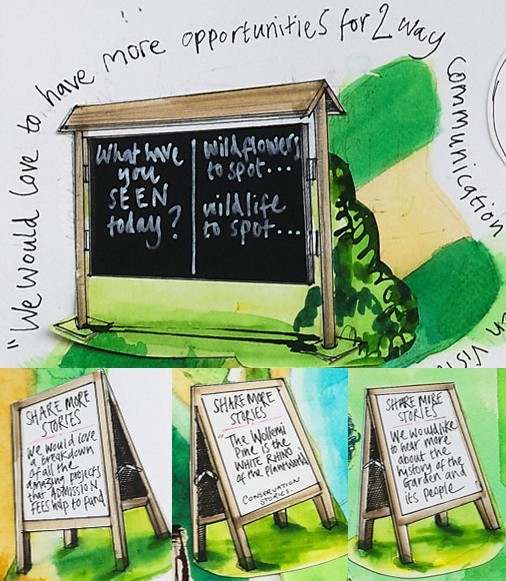 "We would love to have more opportunities for 2 way communication
What have
you
SEEN
today?
wildflowers
to spot...
wildlife
to spot...
SHARE MORE
STORIES
We would love
a breakdown
of all the
amazing projects
that ADMISSION
FEES help to fund
SHARE MORE
STORIES
"The Wollemi
Pine is the
WHITE RHINO
of the plantworld
CONSERVATION
STORIES.
SHARE MORE
STORIES
We would like
to hear more
about the
history of the
Garden and
its people